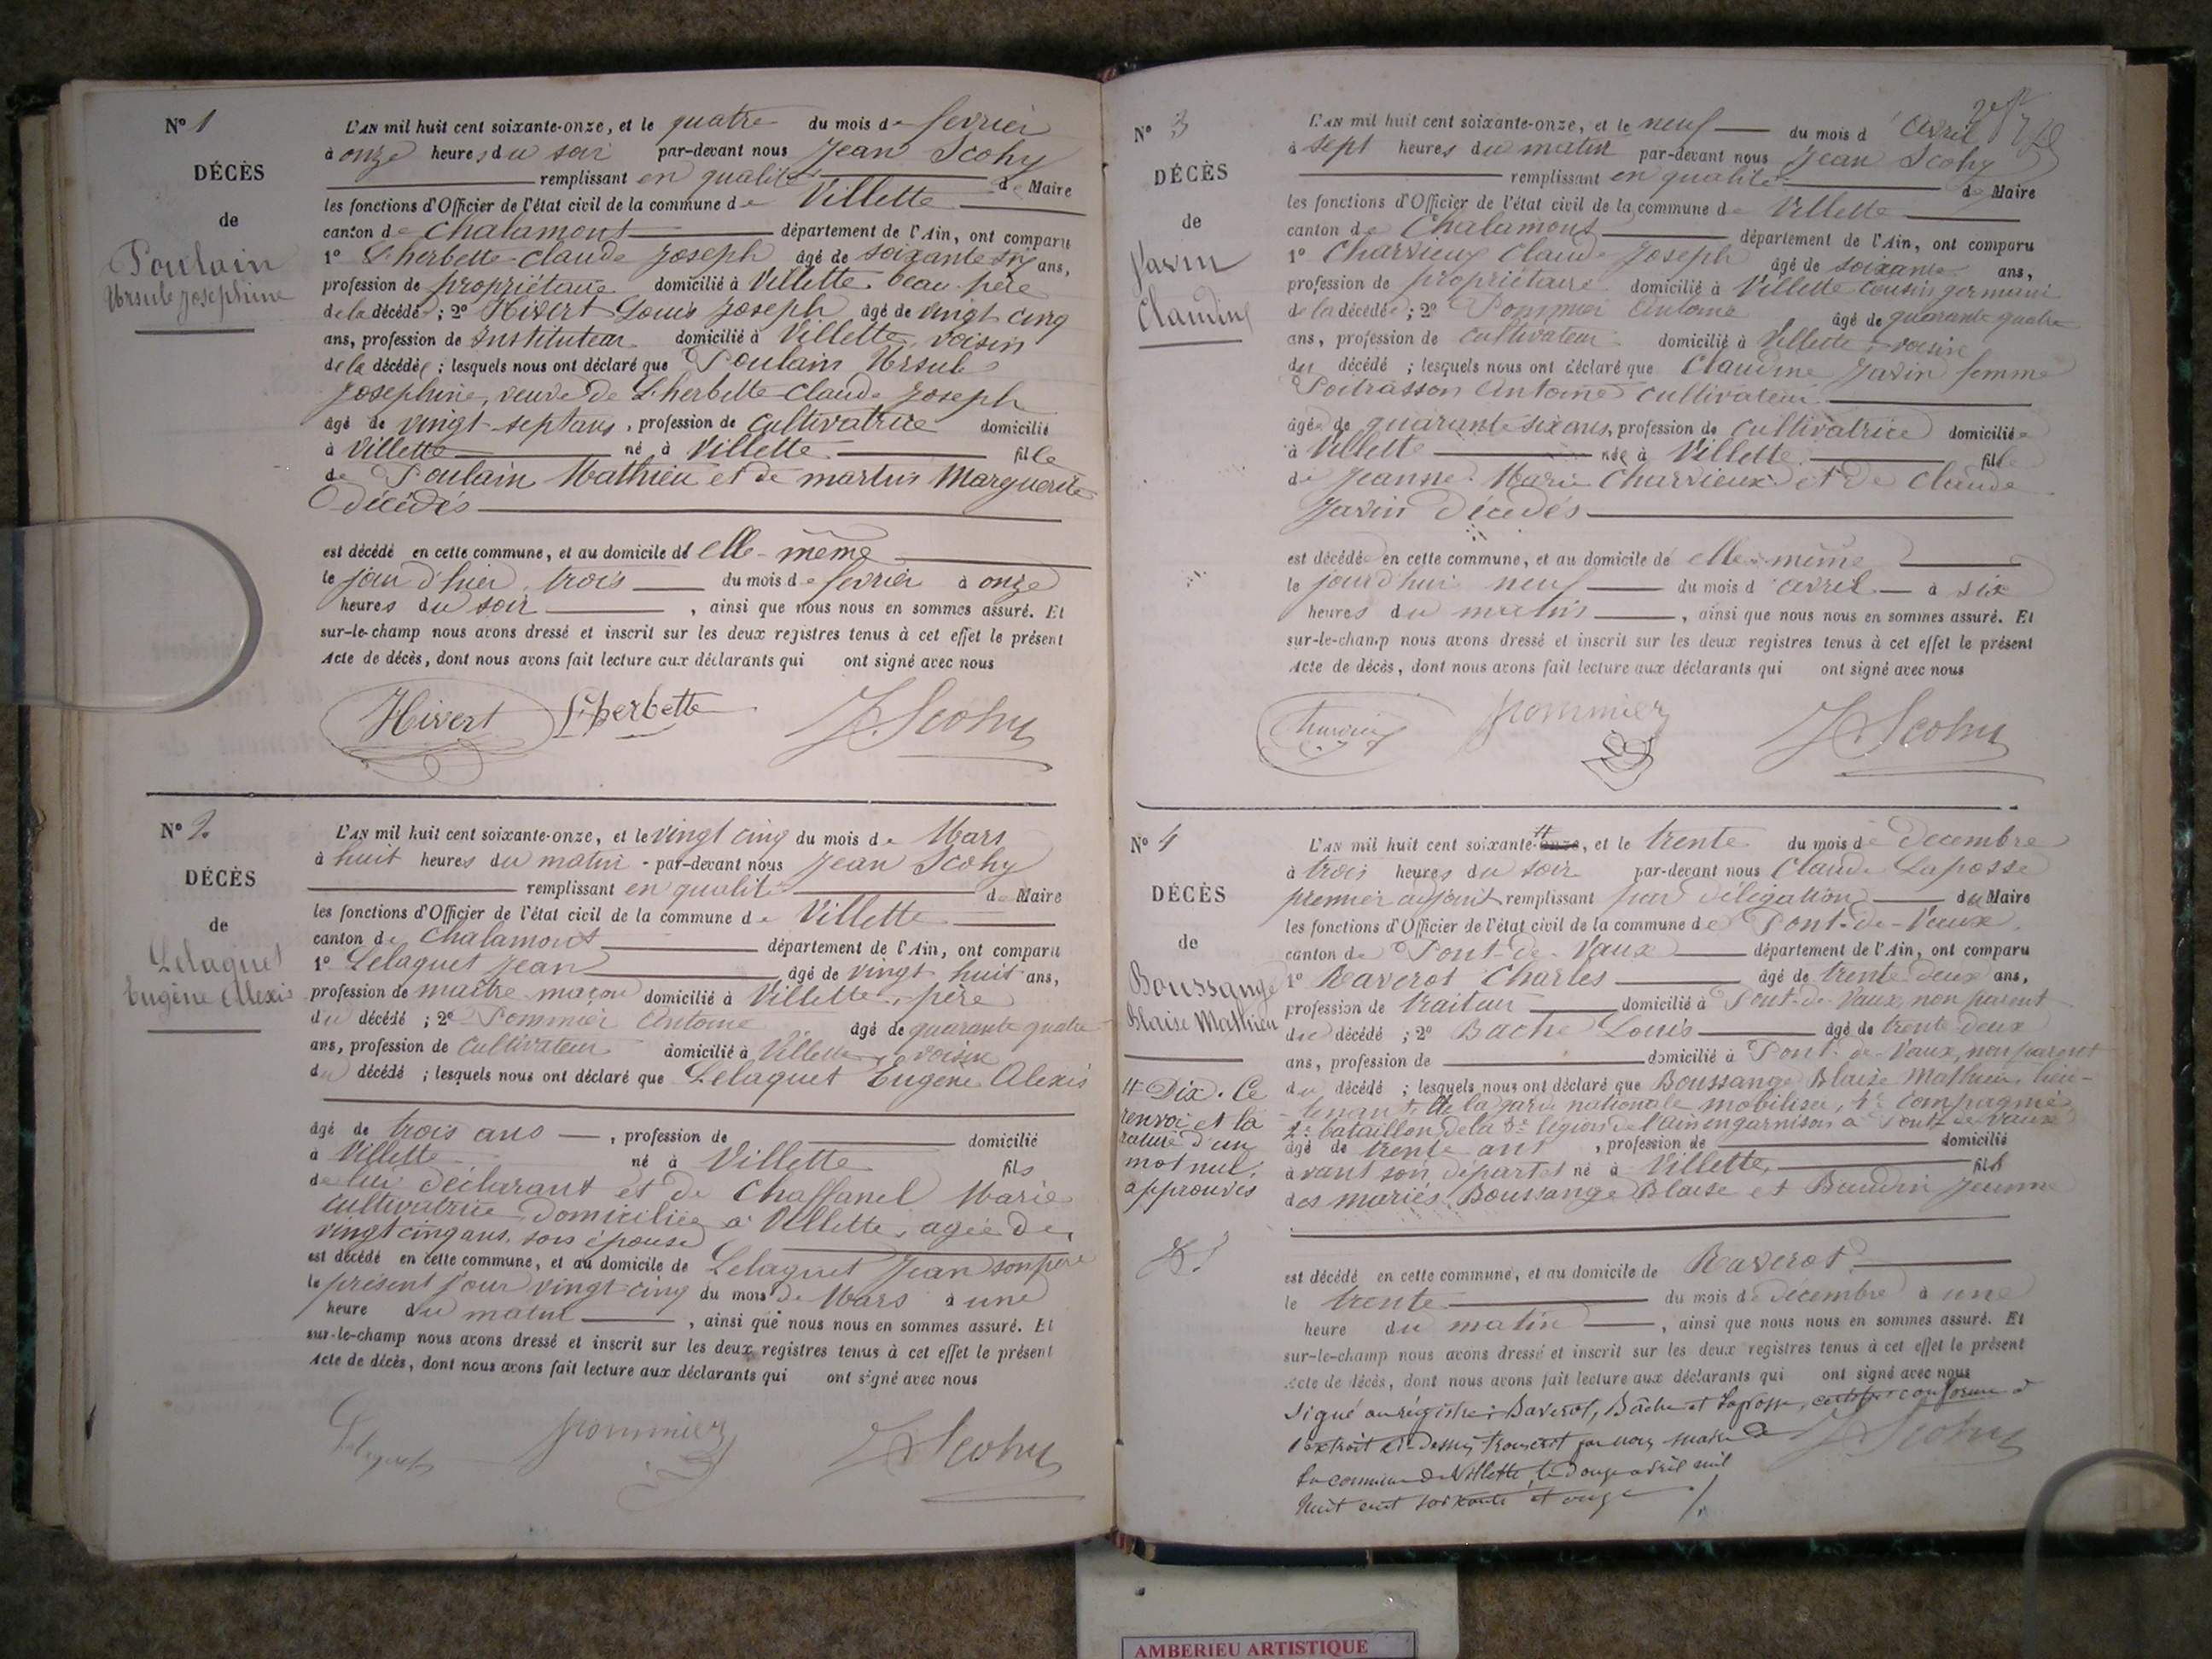 N° 1
DÉCÈS
de
Poulain
Ursule Josephine
L'AN mil huit cent soixante-onze, et le quatre du mois de fevrier
à onze heures du soir par-devant nous Jean Scohy
remplissant en qualité de Maire
les fonctions d'Officier de l'état civil de la commune de Villette
canton de Chalamont département de l'Ain, ont comparu
1° Lherbette Claude Joseph âgé de soixante six ans,
profession de propriétaire domicilié à Villette beau-père
de la décédé ; 2° Hivert Louis Joseph âgé de vingt cinq
ans, profession de Instituteur domicilié à Villette, voisin
de la décédée ; lesquels nous ont déclaré que Poulain Ursule
Josephine, veuve de Lherbette Claude Joseph
âgé de vingt-sept ans, profession de cultivatrice domicilié
à Villette né à Villette fille
de Poulain Mathieu et de martin Marguerite
décédés
est décédé en cette commune, et au domicile de elle-même
le jour d'hier, trois du mois de fevrier à onze
heures du soir, ainsi que nous nous en sommes assuré. Et
sur-le-champ nous avons dressé et inscrit sur les deux registres tenus à cet effet le présent
Acte de décès, dont nous avons fait lecture aux déclarants qui ont signé avec nous
Hivert Lherbette J Scohy
N° 2
DÉCÈS
de
Lelaquet
Eugène Alexis
L'AN mil huit cent soixante-onze, et le vingt cinq du mois de Mars
à huit heures du matin par-devant nous Jean Scohy
remplissant en qualité de Maire
les fonctions d'Officier de l'état civil de la commune de Villette
canton de Chalamont département de l'Ain, ont comparu
1° Lelaquet Jean âgé de vingt huit ans,
profession de maître maçon domicilié à Villette, père
du décédé ; 2° Pommier Antoine âgé de quarante quatre
ans, profession de Cultivateur domicilié à Villette, voisin
du décédé ; lesquels nous ont déclaré que Lelaquet Eugène Alexis
âgé de trois ans, profession de domicilié
à Villette né à Villette fils
de lui déclarant et de Chaffanel Marie
cultivatrice domiciliée à Villette, agée de
vingt cinq ans, son épouse
est décédé en cette commune, et au domicile de Lelaquet Jean son père
le présent jour vingt-cinq du mois de Mars à une
heure du matin, ainsi que nous nous en sommes assuré. Et
sur-le-champ nous avons dressé et inscrit sur les deux registres tenus à cet effet le présent
Acte de décès, dont nous avons fait lecture aux déclarants qui ont signé avec nous
Lelaquet pommier J Scohy
N° 3
DÉCÈS
de
Javin
Claudine
L'AN mil huit cent soixante-onze, et le neuf du mois d'Avril
à sept heures du matin par-devant nous Jean Scohy
remplissant en qualité de Maire
les fonctions d'Officier de l'état civil de la commune de Villette
canton de Chalamont département de l'Ain, ont comparu
1° Charvieux Claude Joseph âgé de soixante ans,
profession de propriétaire domicilié à Villette cousin germain
de la décédée ; 2° Pommier Antoine âgé de quarante quatre
ans, profession de cultivateur domicilié à Villette, voisin
du décédé ; lesquels nous ont déclaré que Claudine Javin femme
Poitrasson Antoine cultivateur
âgée de quarante six ans, profession de cultivatrice domiciliée
à Villette née à Villette fille
de Jeanne Marie Charvieux et de Claude
Javin décédés
est décédée en cette commune, et au domicile de elle-même
le jourd'hui neuf du mois d'avril à six
heures du matin, ainsi que nous nous en sommes assuré. Et
sur-le-champ nous avons dressé et inscrit sur les deux registres tenus à cet effet le présent
Acte de décès, dont nous avons fait lecture aux déclarants qui ont signé avec nous
Charvieux pommier J Scohy
N° 4
DÉCÈS
de
Boussange
Blaise Mathieu
# Dix. Ce
renvoi et la
rature d'un
mot nul,
approuvés
L'AN mil huit cent soixante-#onze, et le trente du mois de Decembre
à trois heures du soir par-devant nous Claude Laposse
premier adjoint remplissant par délégation du Maire
les fonctions d'Officier de l'état civil de la commune de Pont-de-Vaux
canton de Pont-de-Vaux département de l'Ain, ont comparu
1° Raverot Charles âgé de trente deux ans,
profession de traiteur domicilié à Pont-de-Vaux, non parent
du décédé ; 2° Bache Louis âgé de trente deux
ans, profession de domicilié à Pont-de-Vaux, non parent
du décédé ; lesquels nous ont déclaré que Boussange Blaise Mathieu, lieu-
tenant de la garde nationale mobilisée, 1e compagnie
2e bataillon de la 3e légion de l'ain en garnison à Pont de Vaux
âgé de trente ans, profession de domicilié
avant son départ et né à Villette, fils
des mariés Boussange Blaise et Baudin Jeanne
est décédé en cette commune, et au domicile de Raverot
le trente du mois de décembre à une
heure du matin, ainsi que nous nous en sommes assuré. Et
sur-le-champ nous avons dressé et inscrit sur les deux registres tenus à cet effet le présent
Acte de décès, dont nous avons fait lecture aux déclarants qui ont signé avec nous
Signé au régistre: Raverot, Bâche et Laposse, certifié conforme à
l'extrait ci-dessus transcrit par nous maire de
la commune de Villette, le douze avril mil
huit cent soixante et onze
J Scohy
AMBERIEU ARTISTIQUE